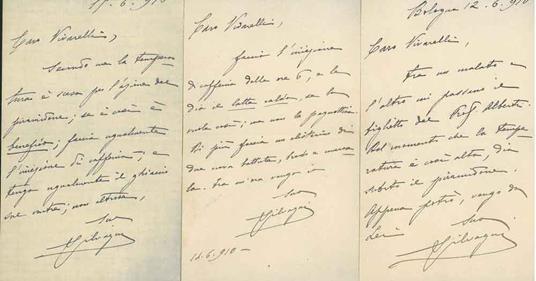 15-6-910
Caro Vivarelli,
Secondo me la tempera
tura è scesa per l'azione del
piramidone; se è così è
benefica; faccia ugualmente
l'iniezione di caffeina, e
tenga ugualmente il ghiaccio
sul ventre; non altro.
Suo
Silvagni
Caro Vivarelli,
faccia l'iniezione
di caffeina delle ore 6, e le
dia il latte caldo, se lo
vuole così; se non la
Di più faccia un clistere di
due uova
la. tra un'ora vengo io
Suo
Silvagni
14-6-910-
Bologna 12-6-910
Caro Vivarelli,
tra un malato e
l'altro mi passano il
biglietto del Prof. Alberti.
Dal momento che la tempe
ratura è così alta, dia
subito il piramidone.
Appena potrò, vengo da
Lei
Suo
Silvagni